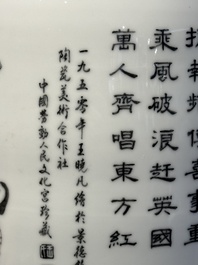 捷報頻傳喜事重
乘風破浪赶英國
萬人齊唱東方紅
一九五零年王曉凡繪於景德鎮
陶瓷美術合作社
中國勞動人民文化宮珍藏